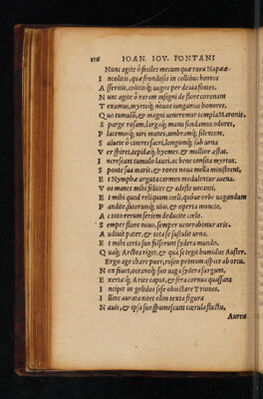 116 IOAN. IOV. PONTANI
Nunc agite ô faciles mecum quæ rura Napææ
Incolitis, quæ frondosis in collibus hortos
Asseritis, colitisq; uagos per deuia fontes.
Nunc agite ô raram insigni de flore coronam
Texamus, myrtoq; nouos iungamus honores,
Quo tumulũ, et magni ueneremur templa Maronis.
Sparge rosam, largoq; manu fundamus odores,
Placemusq; uiri manes, umbramq; silentem.
Saluete ô cineres sacri, longumq; sub urna
Ver spiret, tepidæq; hyemes, et mollior æstas.
Increscant tumulo lauri, ac bene consita myrtus.
Sponte sua mæris, et rores noua mella ministrent,
Et Nymphæ arguta carmen modulentur auena.
Vos manes mihi felices et adeste uocanti,
Et mihi quod reliquum cœli, quod orbe uagandum
Pandite, futurumq; uias, et operta mouete,
A coto rerum seriem deducite cœlo.
Semper flore nouo, semper uenerabimur arit.
Audiuit pater, et tota se sustulit urna.
Et mihi certa suo fulserunt sydera mundo,
Quaq; Arctos riget, et qua se tegit humidus Auster.
Ergo age chare puer, roseo primum aspice ab ortu,
Nox fluit, oceanoq; suo uaga sydera surgunt,
Exertaq; Aries caput, et fera cornua quassans
Incipit in gelidos sese obiectare Triones.
Illinc aurata nitet olim texta figura
Nauis, et ipsa suo spumescunt cœrula fluctu,
Aurea